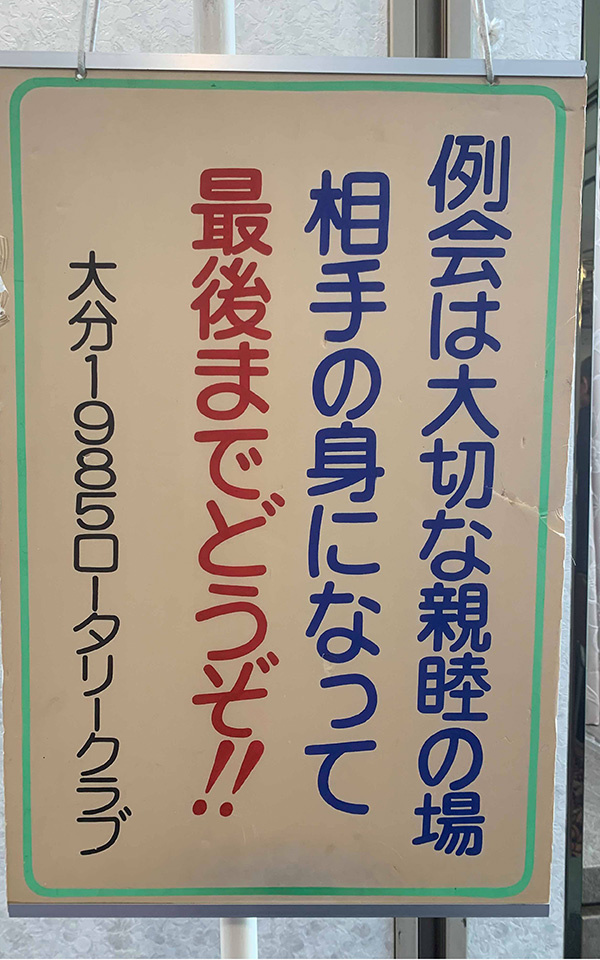 例会は大切な親睦の場
相手の身になって
最後までどうぞ!!
大分1985ロータリークラブ